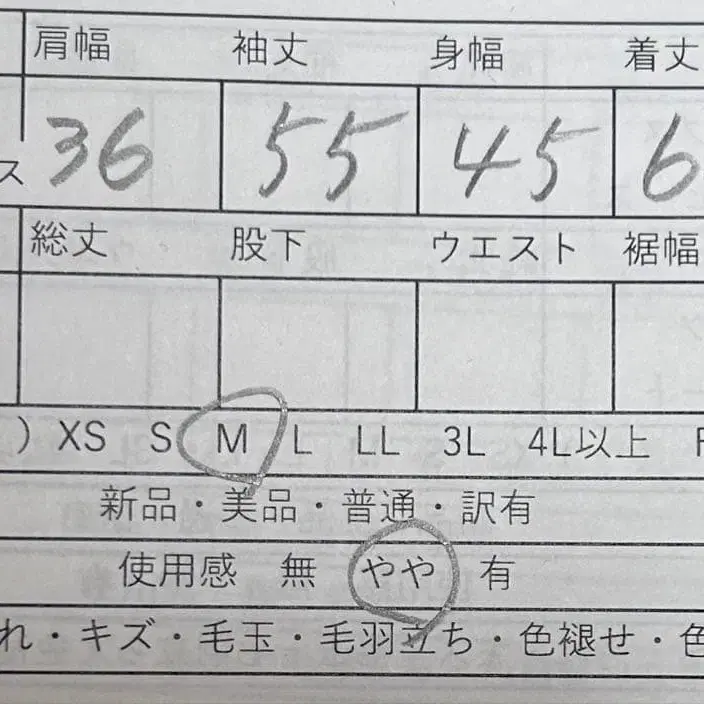 肩幅 袖丈 身幅 着丈
ス 36 55 45 6
総丈 股下 ウエスト 裾幅
) XS S M L LL 3L 4L以上 F
新品・美品・普通・訳有
使用感 無 やや 有
れ・キズ・毛玉・毛羽立ち・色褪せ・色